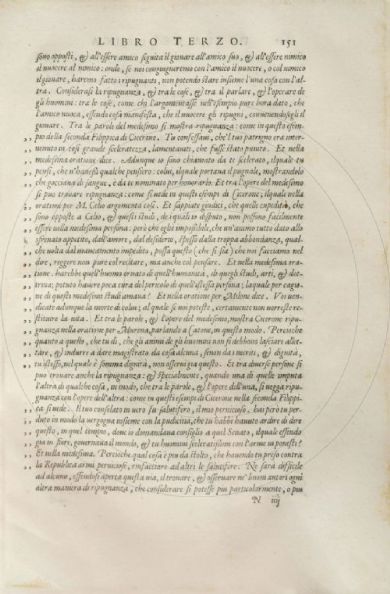 LIBRO TERZO. 151
sono opposti, & all'essere amico seguita il giouare all'amico suo, & all'essere nimico
il nuocere al nimico: onde, se noi congiugneremo con l'amico il nuocere, o col nimico
il giouare, haremo fatto i ripugnanti, non potendo stare insieme l'una cosa con l'al-
tra. Considerasi la ripugnanza, & tra le cose, & tra il parlare, & l'operare de
gli huomini: tra le cose, come chi l'argomentasse nell'esempio pure hora dato, che
l'amico nuoca, essendo cosa manifesta, che il nuocere gli ripugni, conuenendosegli il
giouare. Tra le parole del medesimo si mostra ripugnanza: come in questo esem-
pio della seconda Filippica di Cicerone. Tu confessaui, che'l tuo patrigno era inter-
uenuto in così grande sceleratezza, lamentauiti, che fusse stato punito. Et nella
medesima oratione dice. Adunque io sono chiamato da te scelerato, il quale tu
pensi, che n'hauessi qualche pensiero: colui, il quale portaua il pugnale, mostrandolo
che gocciaua di sangue, è da te nominato per honorarlo. Et tra l'opere del medesimo
si può trouare ripugnanza: come si uede in questi esempi di Cicerone; il quale nella
oratione per M. Celio argomenta così. Et sappiate giudici, che quelle cupidità, che
sono opposte a Celio, & questi studi, de i quali io disputo, non possono facilmente
essere nella medesima persona: però che egli è impossibile, che un'animo tutto dato allo
sfrenato appetito, dall'amore, dal desiderio, spesso dalla troppa abbondanza, qual-
che uolta dal mancamento impedito, possa questo (che si sia) che noi facciamo nel
dire, reggere non pure col recitare, ma anche col pensare. Et nella medesima ora-
tione. harebbe quell'huomo ornato di quell'humanità, di quegli studi, arti, & dot-
trina; potuto hauere poca cura del pericolo di quell'istessa persona; la quale per cagio-
ne di questi medesimi studi amaua? Et nella oratione per Milone dice. Voi uen-
dicate adunque la morte di colui; al quale se uoi poteste, certamente non uorreste re-
stituire la uita. Et tra le parole, & l'opere del medesimo, mostra Cicerone ripu-
gnanza nella oratione per Murena, parlando a Catone, in questo modo. Percioche
quanto a questo, che tu di, che gli animi de gli huomini non si debbono lasciare alle-
tare, & indurre a dare magistrato da cosa alcuna, se non da i meriti, & dignità,
tu istesso, nel quale è somma dignità, non osserui già questo. Et tra diuerse persone si
può trouare anche la ripugnanza: & specialmente, quando una di quelle imputa
l'altra di qualche cosa, in modo, che tra le parole, & l'opere dell'una, si uegga ripu-
gnanza con l'opere dell'altra: come in questi esempi di Cicerone nella seconda Filippi-
ca si uede. Il tuo consolato in uero fu salutifero, il mio pernicioso. hai però tu per-
duto in modo la uergogna insieme con la pudicitia, che tu habbi hauuto ardire di dire
questo, in quel tempio, doue io domandaua consiglio a quel Senato, il quale essendo
già in fiore, gouernaua il mondo, & tu huomini scelerati con l'arme in poneste?
Et nella medesima. Percioche qual cosa è più da stolto, che hauendo tu preso contra
la Republica armi perniciose, rinfacciare ad altri le salutifere. Ne sarà difficile
ad alcuno, essendosi aperta questa uia, il trouare, & osseruare ne' buoni autori ogni
altra maniera di ripugnanza, che considerare si potesse più particularmente, o più
N iiij